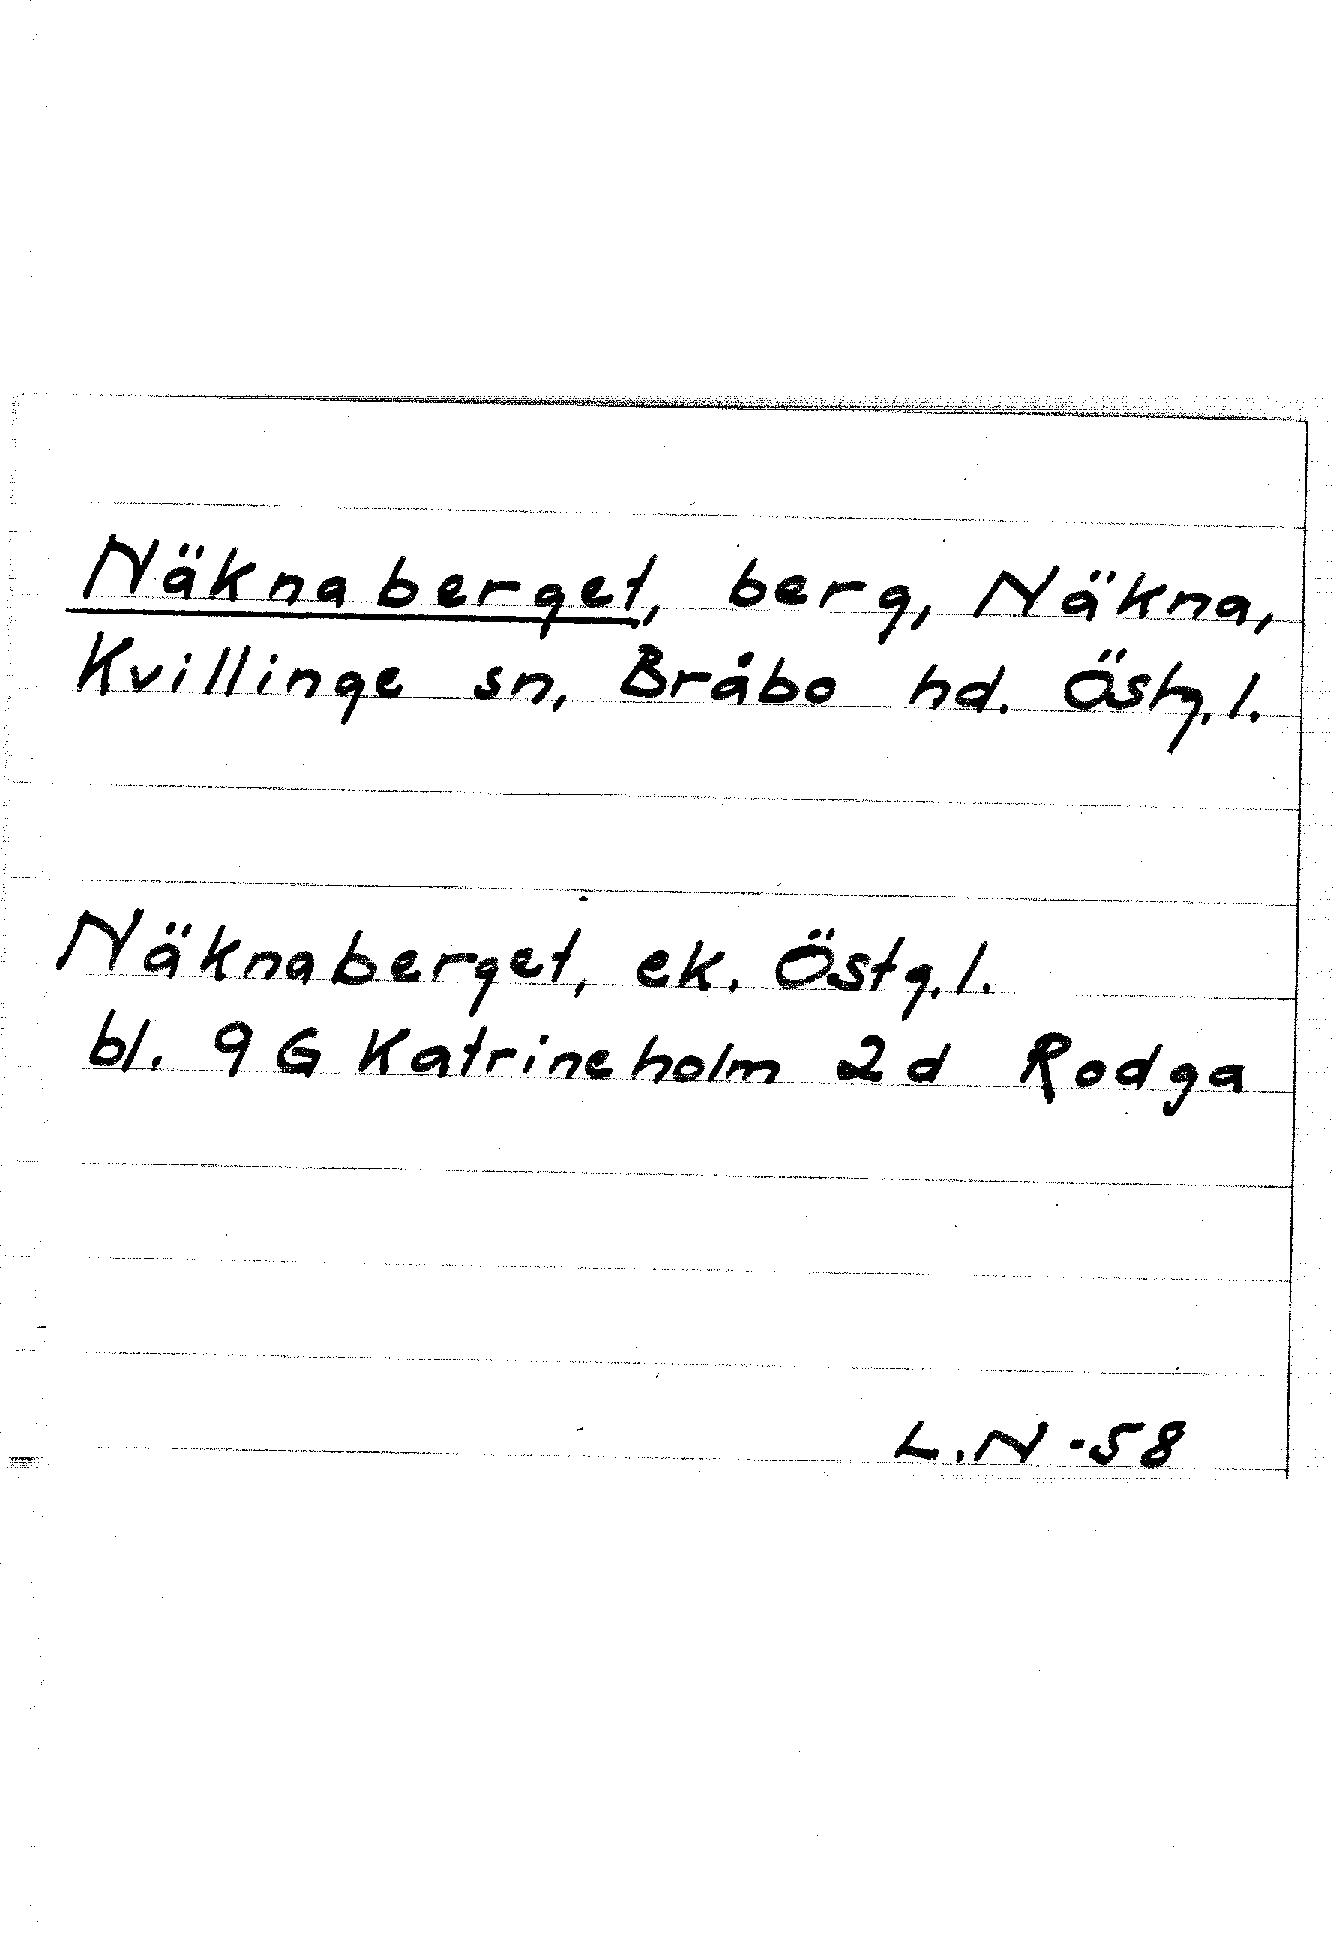 Näknaberget, berg, Näkna,
Kvillinge sn, Bråbo hd. Östg.l.
Näknaberget, ek. Östg.l.
bl. 9 G Katrineholm 2 d Rodga
L.N -58